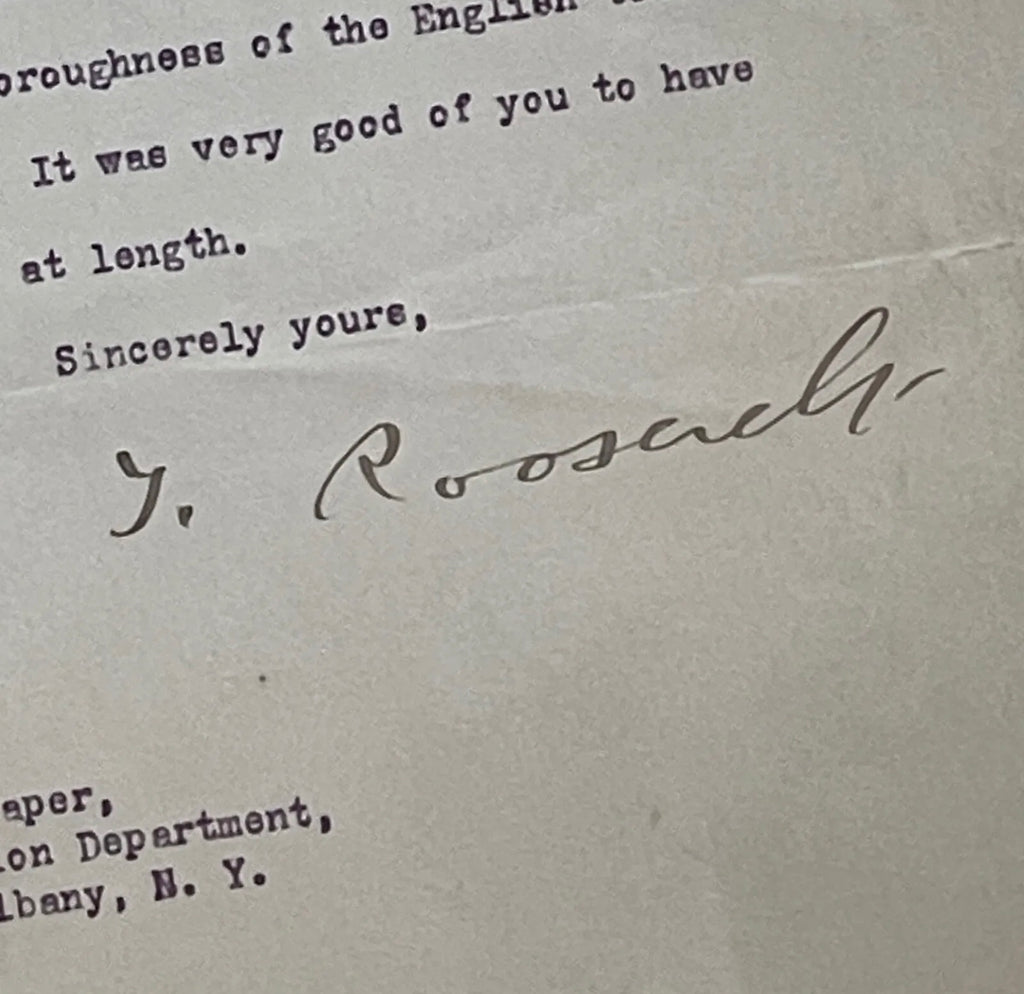 oroughness of the English
It was very good of you to have
at length.
Sincerely yours,
T. Roosevelt
aper,
ion Department,
lbany, N. Y.